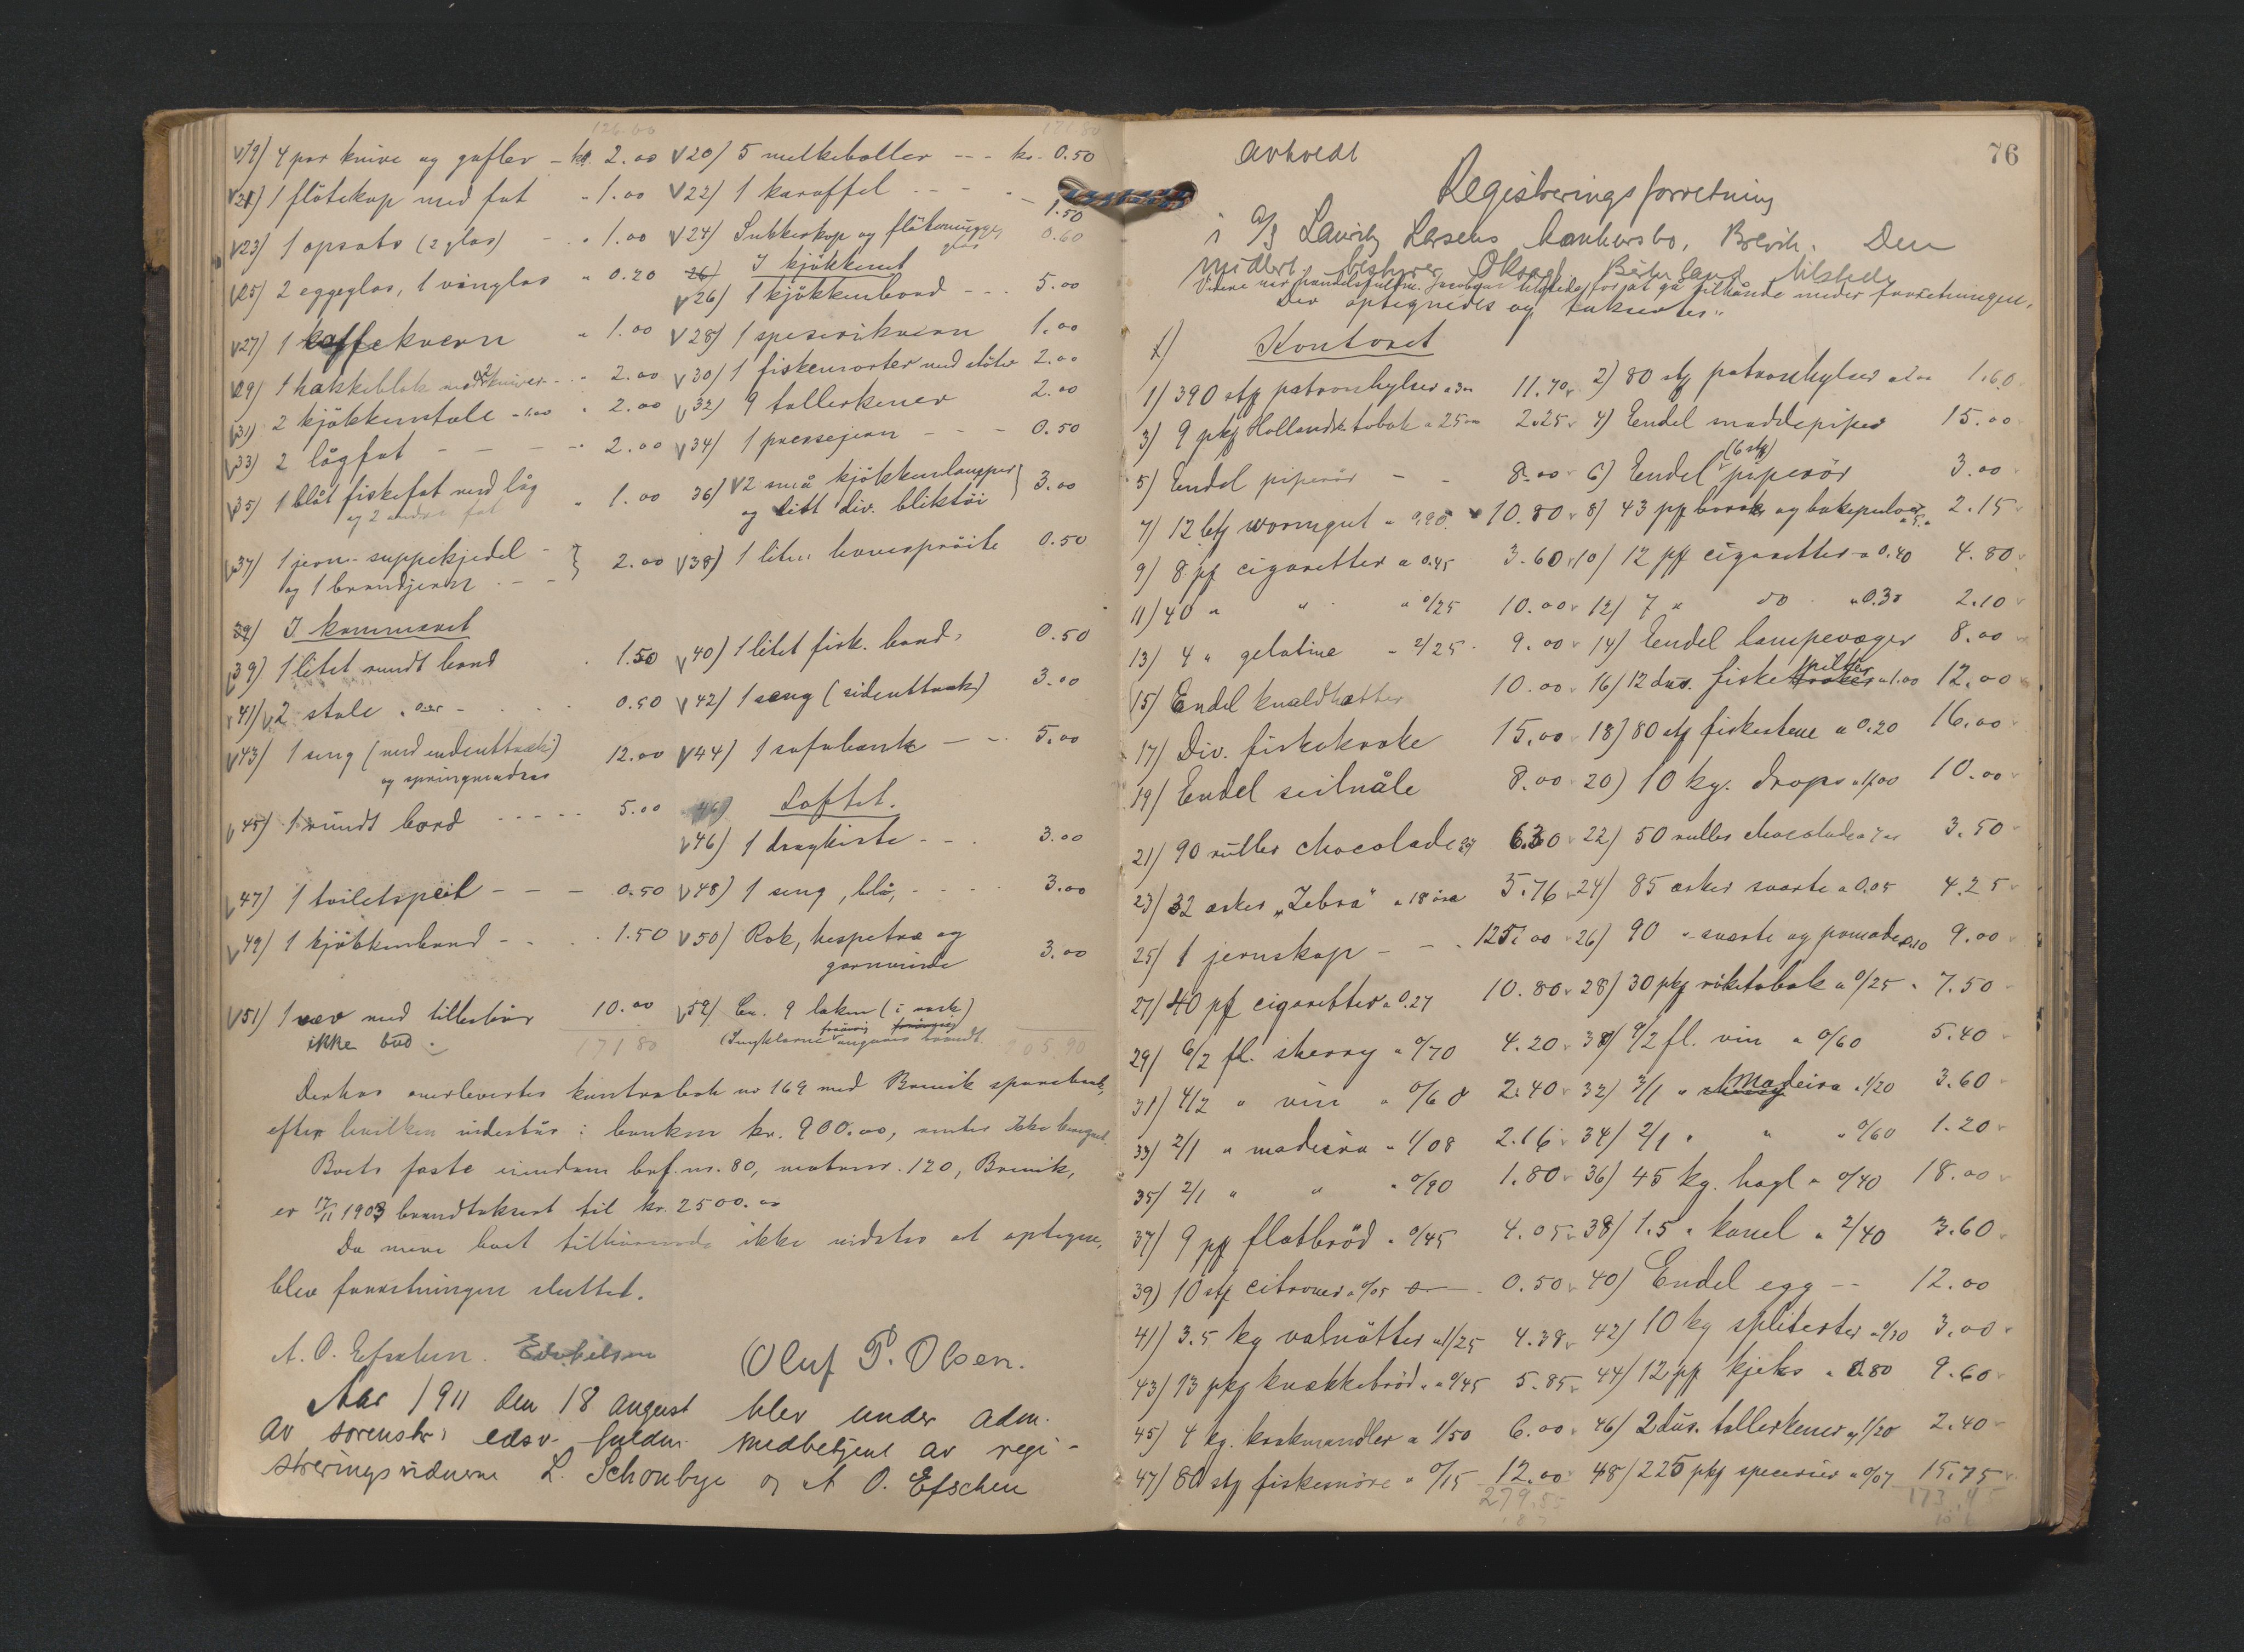 126.00 171 80
19) 4 par knive og gafler - kr. 2.00 20) 5 melkeboller --- kr. 0.50
21) 1 flötekop med fat " 1.00 22) 1 karaffel - - - 1.50
23) 1 opsats (2 glas) - " 1.00 24) Sukkerkop og flötemugge glas 0.60
25) 2 eggeglas, 1 vinglas " 0.20 26) I kjökkenet
26) 1 kjökkenbord --- 5.00
27) 1 kaffekvern " 1.00 28) 1 speserikvern 1.00
29) 1 hakkeblok med 2 kniver - " 2.00 30) 1 fiskemorter med støter 2.00
31) 2 kjökkenstole - 1.00 " 2.00 32) 9 tallerkener 2.00
33) 2 lågfat - - - - " 2.00 34) 1 pressejern - - - 0.50
35) 1 blåt fiskefat med låg og 2 andre fat " 1.00 36) 2 små kjökkenlamper og litt div. bliktöi } 3.00
37) 1 jern-suppekjedel - og 1 brandjern - - } 2.00 38) 1 liten havespröite 0.50
39) I kammeret
39) 1 litet rundt bord 1.50 40) 1 litet firk. bord, 0.50
41) 2 stole - - - 0.50 42) 1 seng (sideuttræk) 3.00
43) 1 seng (med endeuttræk) og springmadras 12.00 44) 1 sofabænk - - 5.00
45) 1 rundt bord - - - - - 5.00 46) Loftet.
46) 1 dragkiste - - - 3.00
47) 1 toiletspeil - - - 0.50 48) 1 seng, blå, - - - 3.00
49) 1 kjökkenbord - - - 1.50 50) Rok, hespetræ og garnvinde 3.00
51) 1 væv med tilbehör 10.00 52) Ca. 9 laken (i vask)
ikke bud.
171 80 205.90
Derhos overlevertes kontrabok nr 169 med Brevik sparebank,
efter hvilken indestår i banken kr. 900.00, renter ikke beregnet.
Boets faste eiendom brf. nr. 80, matr.nr. 120, Brevik,
er 17/11 1903 brandtaksert til kr. 2500.00
Da mere boet tilhörende ikke vidstes at optegne,
blev forretningen sluttet.
A. O. Efschen. Oluf P. Olsen.
Aar 1911 den 18 august blev under adm.
av sorenskr's edsv. fuldm. medbetjent av regi-
streringsvidnerne L. Schonbye og A O. Efschen
76
avholdt
Registreringsforretning
i A/S Lauritz Larsens konkursbo, Brevik. Den
midlert. bestyrer tilstede
Der optegnedes og takseredes:
Kontoret
1) 390 stk patronhylser a 3 11.70 2) 80 stk patronhylser a 2 1.60
3) 9 pkg Hollandsk tobak a 25 2.25 4) Endel snaddepiper 15.00
5) Endel piperör - - 8.00 6) Endel (6 stk) piperör 3.00
7) 12 btg wormgut a 0.90 10.80 8) 43 pk boraks og bakepulver a 5 2.15
9) 8 pk cigaretter a 0.45 3.60 10) 12 pk cigaretter a 0.40 4.80
11) 40 " " a 0/25 10.00 12) 7 " do a 0.30 2.10
13) 4 " gelatine a 2/25 9.00 14) Endel lampevæger 8.00
15) Endel knaldhætter 10.00 16) 12 dus. fiskepilker a 1.00 12.00
17) Div. fiskekroke 15.00 18) 80 stk fiskestene a 0.20 16.00
19) Endel seilnåle 8.00 20) 10 kg. drops a 1.00 10.00
21) 90 ruller chocolade 6.30 22) 50 ruller chocolade a 7 3.50
23) 32 æsker "Zebra" a 18 öre 5.76 24) 85 æsker sværte a 0.05 4.25
25) 1 jernskap - - 125.00 26) 90 " sværte og pomade 0.10 9.00
27) 40 pk cigaretter a 0.27 10.80 28) 30 pkg röketobak a 0/25 7.50
29) 6/2 fl. sherry a 0/70 4.20 30) 9/2 fl. vin a 0/60 5.40
31) 4/2 " vin a 0/60 2.40 32) 3/1 " Madeira a 1/20 3.60
33) 2/1 " madeira a 1/08 2.16 34) 2/1 " " a 0/60 1.20
35) 2/1 " " a 0/90 1.80 36) 45 kg. hagl a 0/40 18.00
37) 9 pk flatbröd a 0/45 4.05 38) 1.5 " kanel a 2/40 3.60
39) 10 stk citroner a 0/05 0.50 40) Endel egg -- 12.00
41) 3.5 kg valnötter a 1/25 4.38 42) 10 kg spliterter a 0/30 3.00
43) 13 pkg knækkebröd a 0/45 5.85 44) 12 pk kjeks a 0.80 9.60
45) 4 kg. krakmandler a 1/50 6.00 46) 2 dus. tallerkener a 1/20 2.40
47) 80 stk fiskesnöre a 0/15 12.00 48) 225 pkg specerier a 0/07 15.75